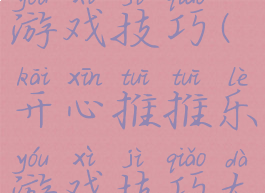 yóu xì jì qiǎo
游戏技巧(
kāi xīn tuī tuī lè
开心推推乐
yóu xì jì qiǎo dà
游戏技巧大